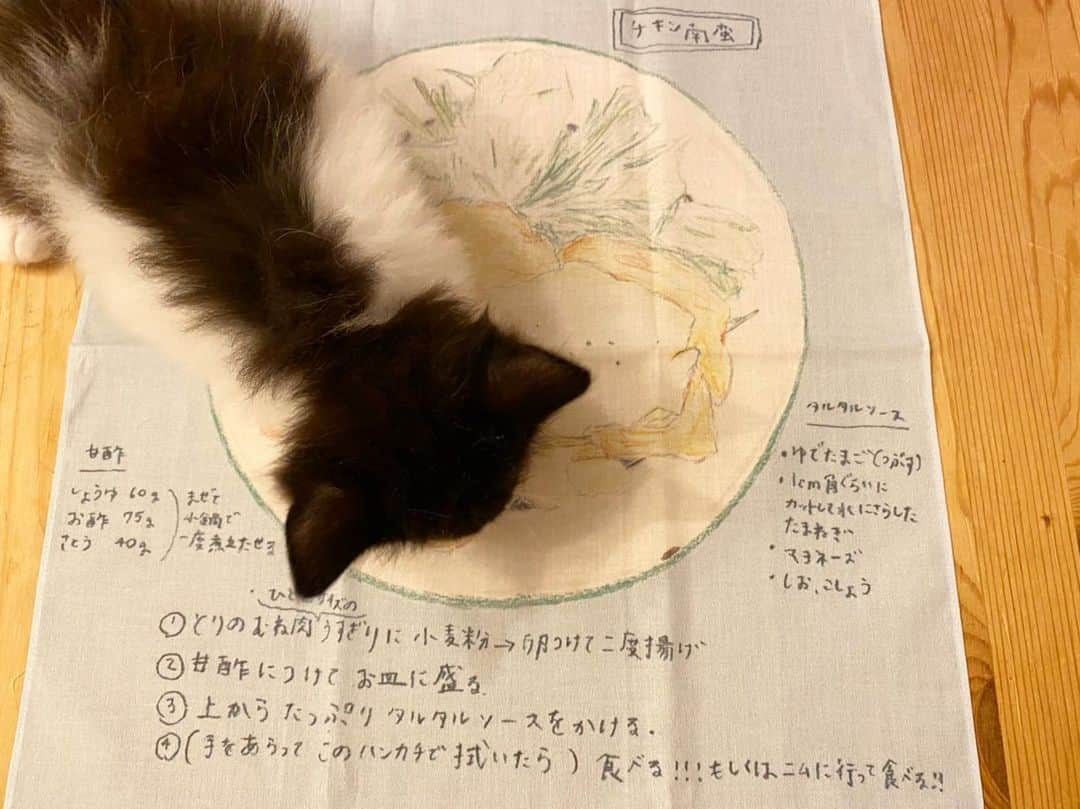 チキン南蛮
甘酢
しょうゆ 60g
お酢 75g
さとう 40g
まぜて
小鍋で
一度煮立たせる
タルタルソース
・ゆでたまご(つぶす)
・1cm角ぐらいに
カットして水にさらした
たまねぎ
・マヨネーズ
・しお、こしょう
サイズの
① とりのむね肉うすぎりに 小麦粉→卵つけて二度揚げ
② 甘酢につけて お皿に盛る。
③ 上から たっぷり タルタルソースをかける。
④ (手をあらって このハンカチで 拭いたら) 食べる!!!もしくは、ニムに行って食べる!!